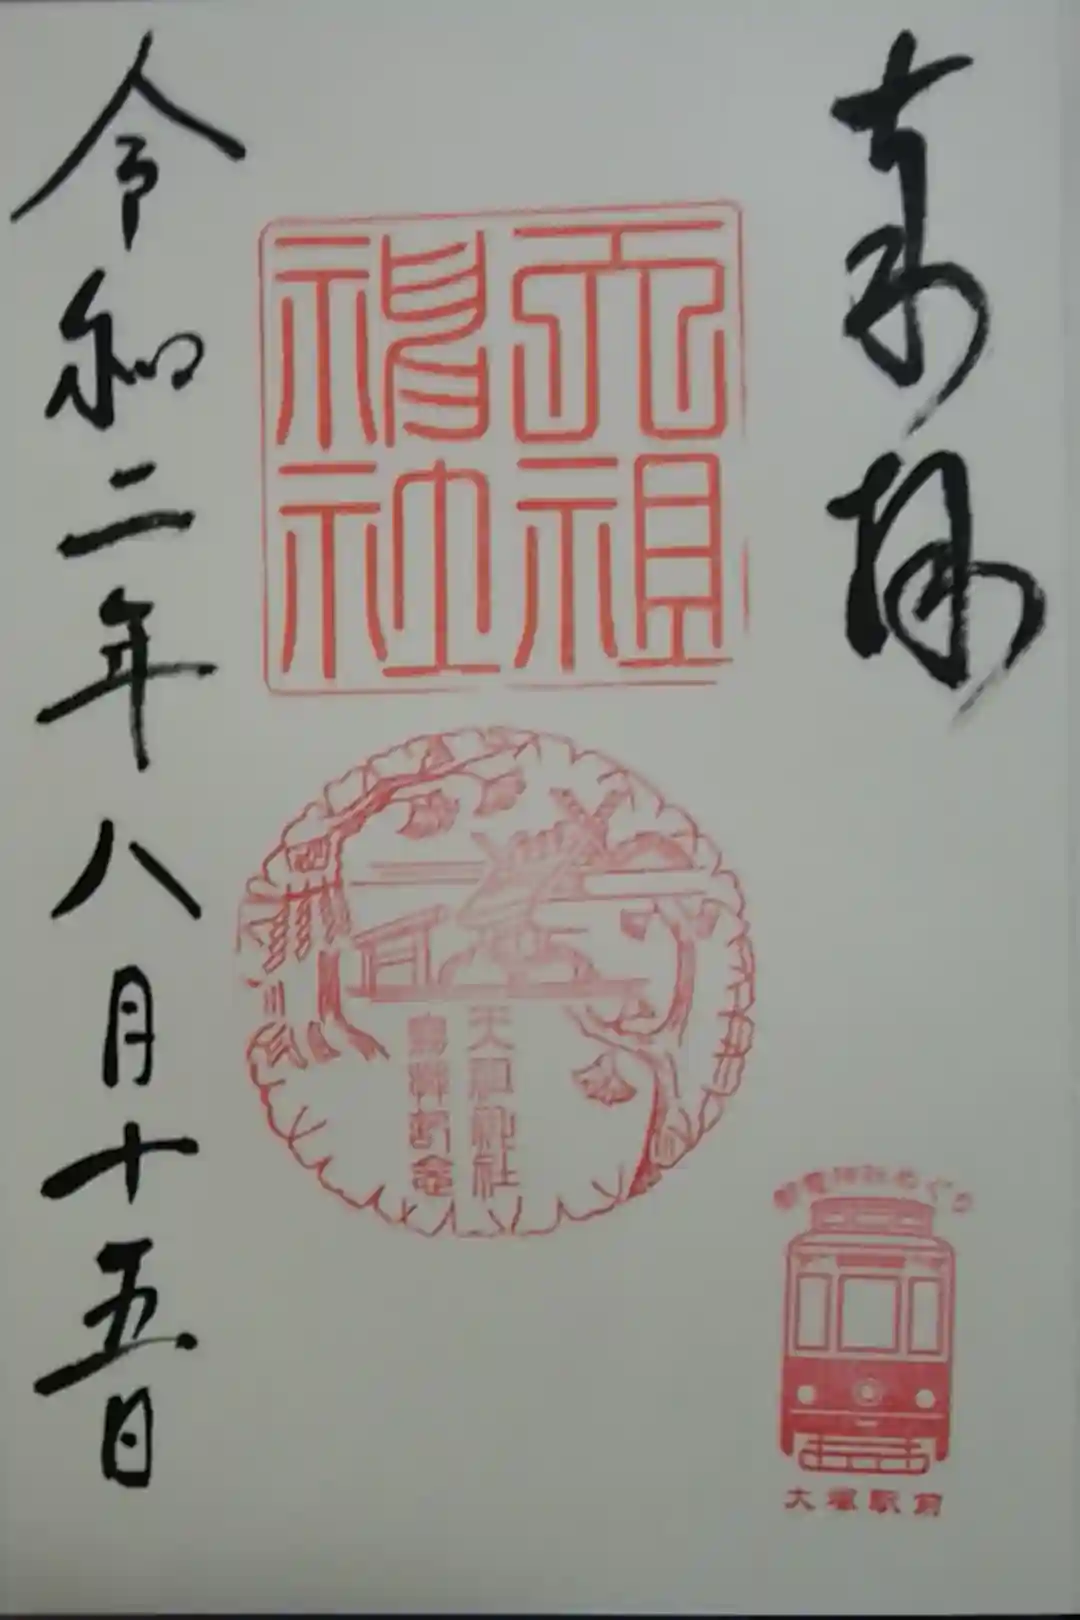 奉拝
天祖
神社
天祖神社
参拝記念
都電神社めぐり
大塚駅前
令和二年八月十五日